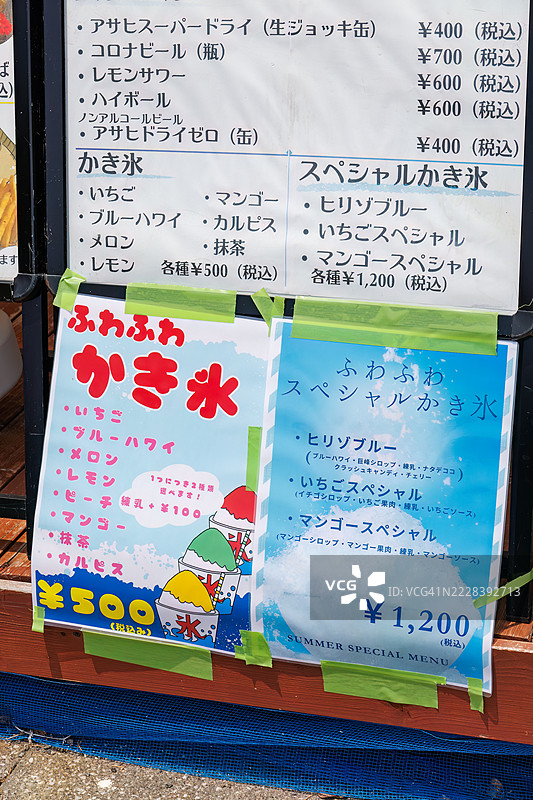 ・アサヒスーパードライ（生ジョッキ缶） ¥400（税込）
・コロナビール（瓶） ¥700（税込）
・レモンサワー ¥600（税込）
・ハイボール ¥600（税込）
ノンアルコールビール
・アサヒドライゼロ（缶） ¥400（税込）
かき氷
・いちご ・マンゴー
・ブルーハワイ ・カルピス
・メロン ・抹茶
・レモン 各種¥500（税込）
スペシャルかき氷
・ヒリゾブルー
・いちごスペシャル
・マンゴースペシャル
各種¥1,200（税込）
ふわふわ
かき氷
・いちご
・ブルーハワイ
・メロン
・レモン
・ピーチ
・マンゴー
・抹茶
・カルピス
1つにつき2種類
選べます！
練乳＋¥100
¥500
（税込み）
氷
ふわふわ
スペシャルかき氷
・ヒリゾブルー
（ブルーハワイ・巨峰シロップ・練乳・ナタデココ
クラッシュキャンディ・チェリー）
・いちごスペシャル
（イチゴシロップ・いちご果肉・練乳・いちごソース）
・マンゴースペシャル
（マンゴーシロップ・マンゴー果肉・練乳・マンゴーソース）
¥1,200
（税込）
SUMMER SPECIAL MENU
VCG
ID: VCG41N2228392713